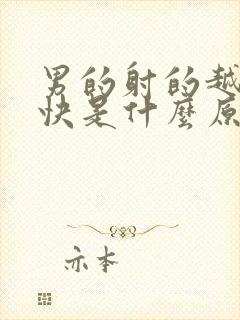 男的射的越
快是什麼原
亦本